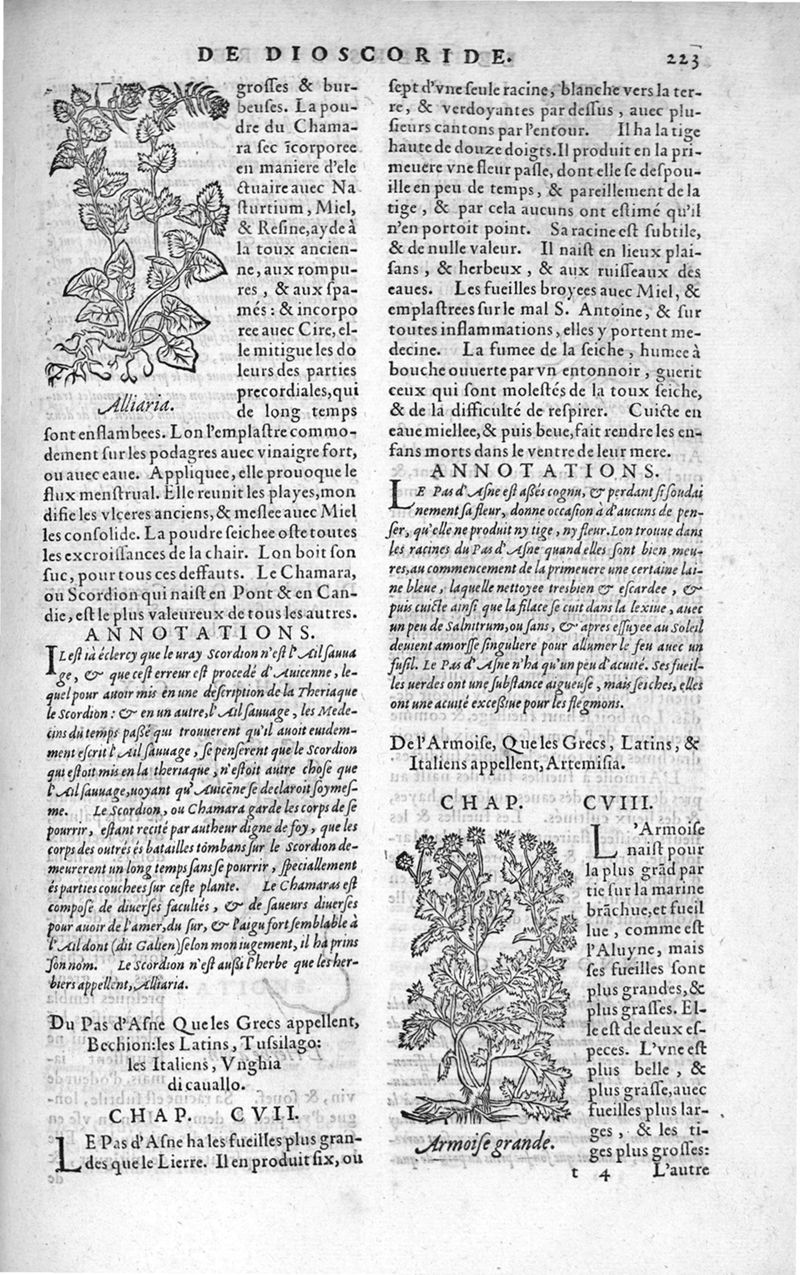 DE DIOSCORIDE.
223
grosses & bur-
beuses. La pou-
dre du Chama-
ra sec īcorporee
en maniere d'ele
ctuaire auec Na
sturtium, Miel,
& Resine, ayde à
la toux ancien-
ne, aux rompu-
res, & aux spa-
més: & incorpo
ree auec Cire, el-
le mitigue les do
leurs des parties
precordiales, qui
de long temps
Alliaria.
sont enflambees. Lon l'emplastre commo-
dement sur les podagres auec vinaigre fort,
ou auec eaue. Appliquee, elle prouoque le
flux menstrual. Elle reunit les playes, mon
difie les vlceres anciens, & meslee auec Miel
les consolide. La poudre seichee oste toutes
les excroissances de la chair. Lon boit son
suc, pour tous ces deffauts. Le Chamara,
ou Scordion qui naist en Pont & en Can-
die, est le plus valeureux de tous les autres.
ANNOTATIONS.
IL est ià éclercy que le uray Scordion n'est l'Ail sauua
ge, & que cest erreur est procedé d'Auicenne, le-
quel pour auoir mis en une description de la Theriaque
le Scordion: & en un autre, l'Ail sauuage, les Mede-
cins du temps passé qui trouuerent qu'il auoit euidem-
ment escrit l'Ail sauuage, se penserent que le Scordion
qui estoit mis en la theriaque, n'estoit autre chose que
l'Ail sauuage, uoyant qu'Auicēne se declaroit soymes-
me. Le Scordion, ou Chamara garde les corps de se
pourrir, estant recité par autheur digne de foy, que les
corps des outrés és batailles tōmbans sur le Scordion de-
meurerent un long temps sans se pourrir, speciallement
és parties couchees sur ceste plante. Le Chamaras est
composé de diuerses facultés, & de saueurs diuerses
pour auoir de l'amer, du sur, & l'aigu fort semblable à
l'Ail dont (dit Galien) selon mon iugement, il ha prins
son nom. Le Scordion n'est aussi l'herbe que les her-
biers appellent, Alliaria.
Du Pas d'Asne Que les Grecs appellent,
Bechion: les Latins, Tussilago:
les Italiens, Vnghia
di cauallo.
CHAP. CVII.
LE Pas d'Asne ha les fueilles plus gran-
des que le Lierre. Il en produit six, ou
sept d'vne seule racine, blanche vers la ter-
re, & verdoyantes par dessus, auec plu-
sieurs cantons par l'entour. Il ha la tige
haute de douze doigts. Il produit en la pri-
meuere vne fleur pasle, dont elle se despou-
ille en peu de temps, & pareillement de la
tige, & par cela aucuns ont estimé qu'il
n'en portoit point. Sa racine est subtile,
& de nulle valeur. Il naist en lieux plai-
sans, & herbeux, & aux ruisseaux des
eaues. Les fueilles broyees auec Miel, &
emplastrees sur le mal S. Antoine, & sur
toutes inflammations, elles y portent me-
decine. La fumee de la seiche, humee à
bouche ouuerte par vn entonnoir, guerit
ceux qui sont molestés de la toux seiche,
& de la difficulté de respirer. Cuicte en
eaue miellee, & puis beue, fait rendre les en-
fans morts dans le ventre de leur mere.
ANNOTATIONS.
LE Pas d'Asne est assés cognu, & perdant si soudai
nement sa fleur, donne occasion à d'aucuns de pen-
ser, qu'elle ne produit ny tige, ny fleur. Lon trouue dans
les racines du Pas d'Asne quand elles sont bien meu-
res, au commencement de la primeuere une certaine lai-
ne bleue, laquelle nettoyee tresbien & escardee, &
puis cuicte ainsi que la filace se cuit dans la lexiue, auec
un peu de Salnitrum, ou sans, & apres essuyee au Soleil
deuient amorsse singuliere pour allumer le feu auec un
fusil. Le Pas d'Asne n'ha qu'un peu d'acuité. Ses fueil-
les uerdes ont une substance aigueuse, mais seiches, elles
ont une acuité excessiue pour les flegmons.
De l'Armoise, Que les Grecs, Latins, &
Italiens appellent, Artemisia.
CHAP. CVIII.
L'Armoise
naist pour
la plus grād par
tie sur la marine
brāchue, et fueil
lue, comme est
l'Aluyne, mais
ses fueilles sont
plus grandes, &
plus grasses. El-
le est de deux es-
peces. L'vne est
plus belle, &
plus grasse, auec
fueilles plus lar-
ges, & les ti-
ges plus grosses:
Armoise grande.
t 4 L'autre